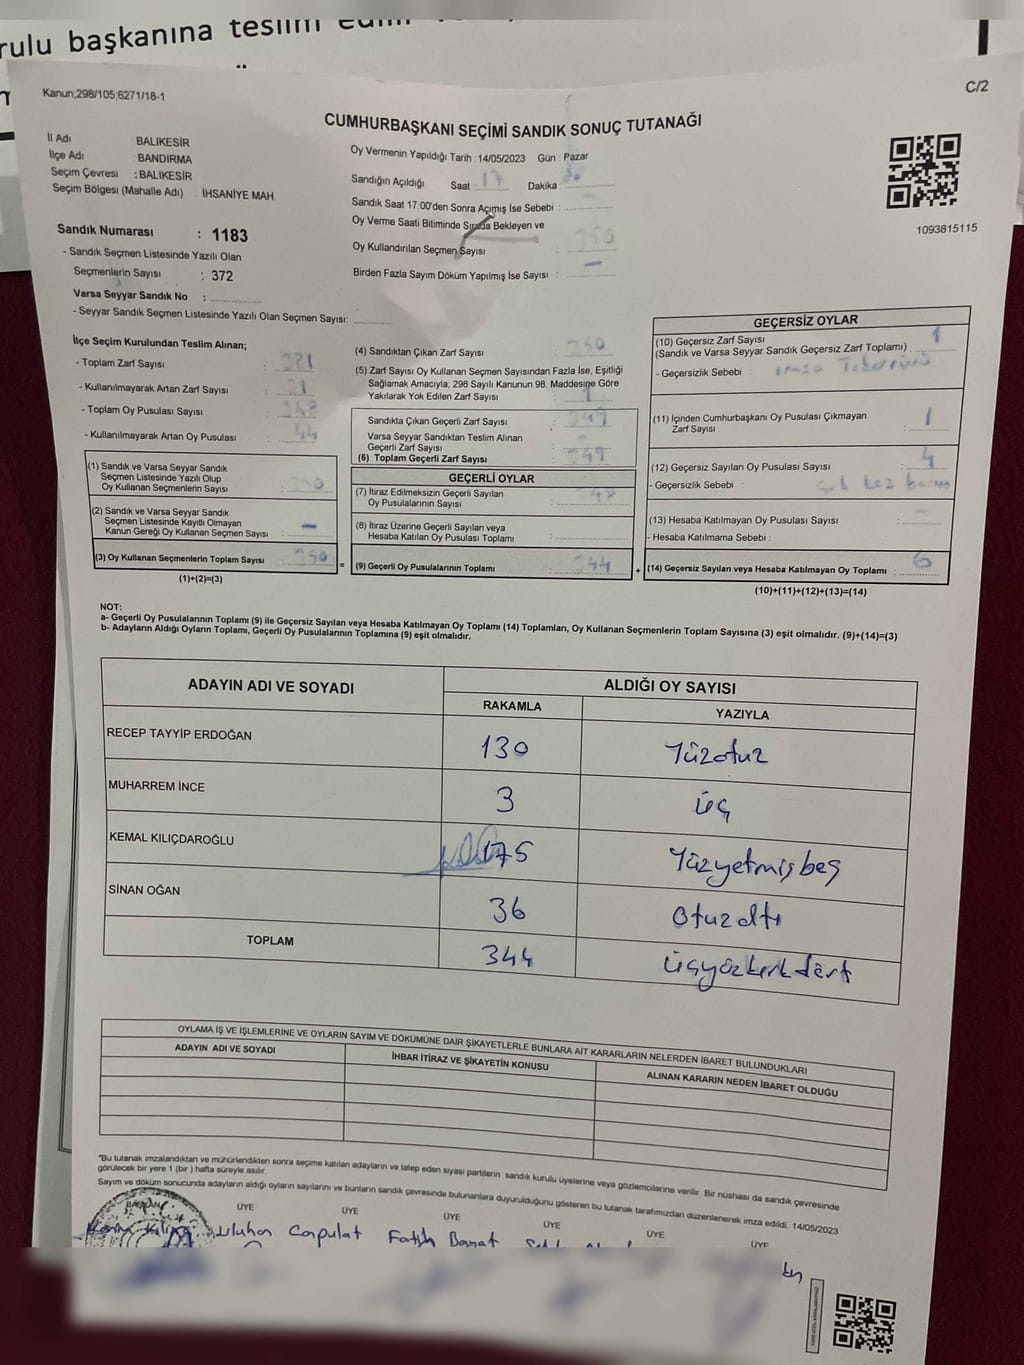 rulu başkanına teslim edil
Kanun;298/105;6271/18-1
C/2
CUMHURBAŞKANI SEÇİMİ SANDIK SONUÇ TUTANAĞI
İl Adı : BALIKESİR
İlçe Adı : BANDIRMA
Seçim Çevresi : BALIKESİR
Seçim Bölgesi (Mahalle Adı) : İHSANİYE MAH.
Oy Vermenin Yapıldığı Tarih : 14/05/2023 Gün : Pazar
Sandığın Açıldığı Saat : 17 Dakika :
Sandık Saat 17:00'den Sonra Açımış İse Sebebi :
Oy Verme Saati Bitiminde Sırada Bekleyen ve
Oy Kullandırılan Seçmen Sayısı : 350
Birden Fazla Sayım Döküm Yapılmış İse Sayısı : —
1093815115
Sandık Numarası : 1183
- Sandık Seçmen Listesinde Yazılı Olan
Seçmenlerin Sayısı : 372
Varsa Seyyar Sandık No :
- Seyyar Sandık Seçmen Listesinde Yazılı Olan Seçmen Sayısı:
İlçe Seçim Kurulundan Teslim Alınan;
- Toplam Zarf Sayısı :
- Kullanılmayarak Artan Zarf Sayısı :
- Toplam Oy Pusulası Sayısı :
- Kullanılmayarak Artan Oy Pusulası : 44
(1) Sandık ve Varsa Seyyar Sandık
Seçmen Listesinde Yazılı Olup
Oy Kullanan Seçmenlerin Sayısı : 350
(2) Sandık ve Varsa Seyyar Sandık
Seçmen Listesinde Kayıtlı Olmayan
Kanun Gereği Oy Kullanan Seçmen Sayısı : —
(3) Oy Kullanan Seçmenlerin Toplam Sayısı : 350
(1)+(2)=(3)
(4) Sandıktan Çıkan Zarf Sayısı : 350
(5) Zarf Sayısı Oy Kullanan Seçmen Sayısından Fazla İse, Eşitliği
Sağlamak Amacıyla; 298 Sayılı Kanunun 98. Maddesine Göre
Yakılarak Yok Edilen Zarf Sayısı :
Sandıkta Çıkan Geçerli Zarf Sayısı : 349
Varsa Seyyar Sandıktan Teslim Alınan
Geçerli Zarf Sayısı :
(6) Toplam Geçerli Zarf Sayısı : 349
GEÇERLİ OYLAR
(7) İtiraz Edilmeksizin Geçerli Sayılan
Oy Pusulalarının Sayısı :
(8) İtiraz Üzerine Geçerli Sayılan veya
Hesaba Katılan Oy Pusulası Toplamı :
(9) Geçerli Oy Pusulalarının Toplamı : 344
GEÇERSİZ OYLAR
(10) Geçersiz Zarf Sayısı
(Sandık ve Varsa Seyyar Sandık Geçersiz Zarf Toplamı) : 1
- Geçersizlik Sebebi : imza Tekerrürü
(11) İçinden Cumhurbaşkanı Oy Pusulası Çıkmayan
Zarf Sayısı : 1
(12) Geçersiz Sayılan Oy Pusulası Sayısı : 4
- Geçersizlik Sebebi :
(13) Hesaba Katılmayan Oy Pusulası Sayısı :
- Hesaba Katılmama Sebebi :
(14) Geçersiz Sayılan veya Hesaba Katılmayan Oy Toplamı : 6
(10)+(11)+(12)+(13)=(14)
NOT:
a- Geçerli Oy Pusulalarının Toplamı (9) ile Geçersiz Sayılan veya Hesaba Katılmayan Oy Toplamı (14) Toplamları, Oy Kullanan Seçmenlerin Toplam Sayısına (3) eşit olmalıdır. (9)+(14)=(3)
b- Adayların Aldığı Oyların Toplamı, Geçerli Oy Pusulalarının Toplamına (9) eşit olmalıdır.
ADAYIN ADI VE SOYADI ALDIĞI OY SAYISI
RAKAMLA YAZIYLA
RECEP TAYYİP ERDOĞAN 130 Yüzotuz
MUHARREM İNCE 3 üç
KEMAL KILIÇDAROĞLU 175 Yüzyetmişbeş
SİNAN OĞAN 36 Otuzaltı
TOPLAM 344 üçyüzkırkdört
OYLAMA İŞ VE İŞLEMLERİNE VE OYLARIN SAYIM VE DÖKÜMÜNE DAİR ŞİKAYETLERLE BUNLARA AİT KARARLARIN NELERDEN İBARET BULUNDUKLARI
ADAYIN ADI VE SOYADI İHBAR İTİRAZ VE ŞİKAYETİN KONUSU ALINAN KARARIN NEDEN İBARET OLDUĞU
*Bu tutanak imzalandıktan ve mühürlendikten sonra seçime katılan adayların ve talep eden siyasi partilerin sandık kurulu üyelerine veya gözlemcilerine verilir. Bir nüshası da sandık çevresinde
görülecek bir yere 1 (bir) hafta süreyle asılır.
Sayım ve döküm sonucunda adayların aldığı oyların sayılarını ve bunların sandık çevresinde bulunanlara duyurulduğunu gösteren bu tutanak tarafımızdan düzenlenerek imza edildi. 14/05/2023
BAŞKAN ÜYE ÜYE ÜYE ÜYE ÜYE ÜYE
Kılınç Uluhan Canpulat Fatih Banat